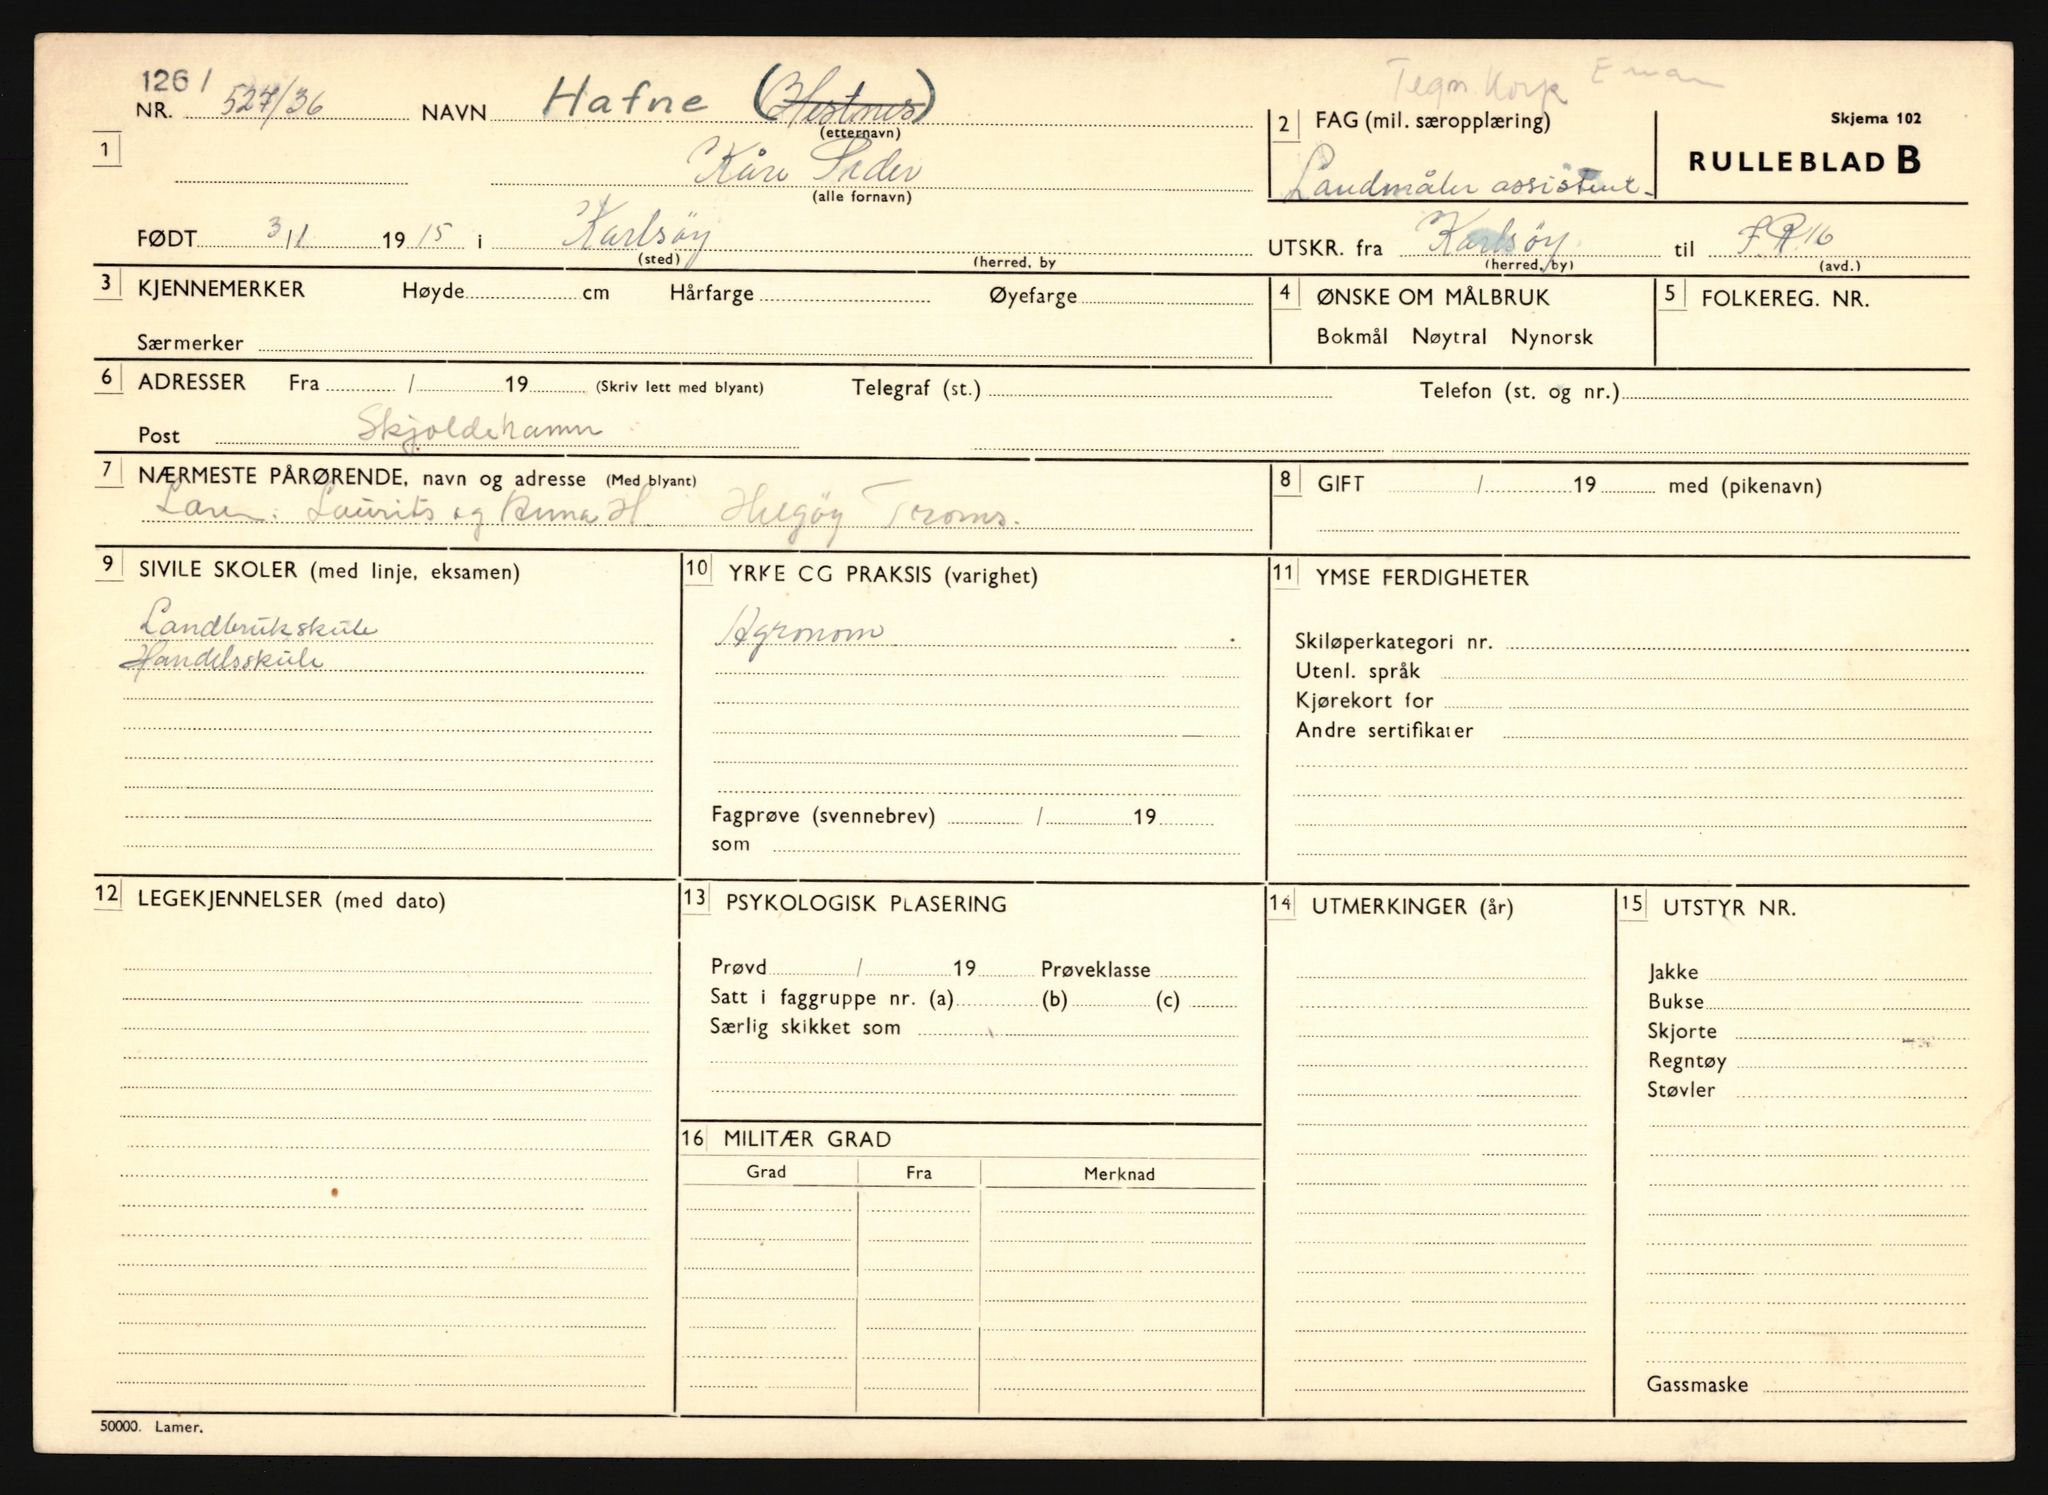 126/
NR. 527/36 NAVN Hafne (Hestnes)
(etternavn)
Tegn. Korp
2 FAG (mil. særopplæring)
Skjema 102
RULLEBLAD B
1
Kåre Peder
(alle fornavn)
Landmåler assistent
FØDT 3/1 1915 i Karlsöy
(sted) (herred, by
UTSKR. fra Karlsöy til I.R. 16
(herred, by) (avd.)
3 KJENNEMERKER Høyde cm Hårfarge Øyefarge
Særmerker
4 ØNSKE OM MÅLBRUK
Bokmål Nøytral Nynorsk
5 FOLKEREG. NR.
6 ADRESSER Fra / 19 (Skriv lett med blyant) Telegraf (st.) Telefon (st. og nr.)
Post Skjoldehamn
7 NÆRMESTE PÅRØRENDE, navn og adresse (Med blyant)
Laurits og Anna H. Helgöy Troms.
8 GIFT / 19 med (pikenavn)
9 SIVILE SKOLER (med linje, eksamen)
Landbrukskule
Handelsskule
10 YRKE CG PRAKSIS (varighet)
Agronom
Fagprøve (svennebrev) / 19
som
11 YMSE FERDIGHETER
Skiløperkategori nr.
Utenl. språk
Kjørekort for
Andre sertifikater
12 LEGEKJENNELSER (med dato)
13 PSYKOLOGISK PLASERING
Prøvd / 19 Prøveklasse
Satt i faggruppe nr. (a) (b) (c)
Særlig skikket som
14 UTMERKINGER (år)
15 UTSTYR NR.
Jakke
Bukse
Skjorte
Regntøy
Støvler
Gassmaske
16 MILITÆR GRAD
Grad Fra Merknad
50000. Lamer.